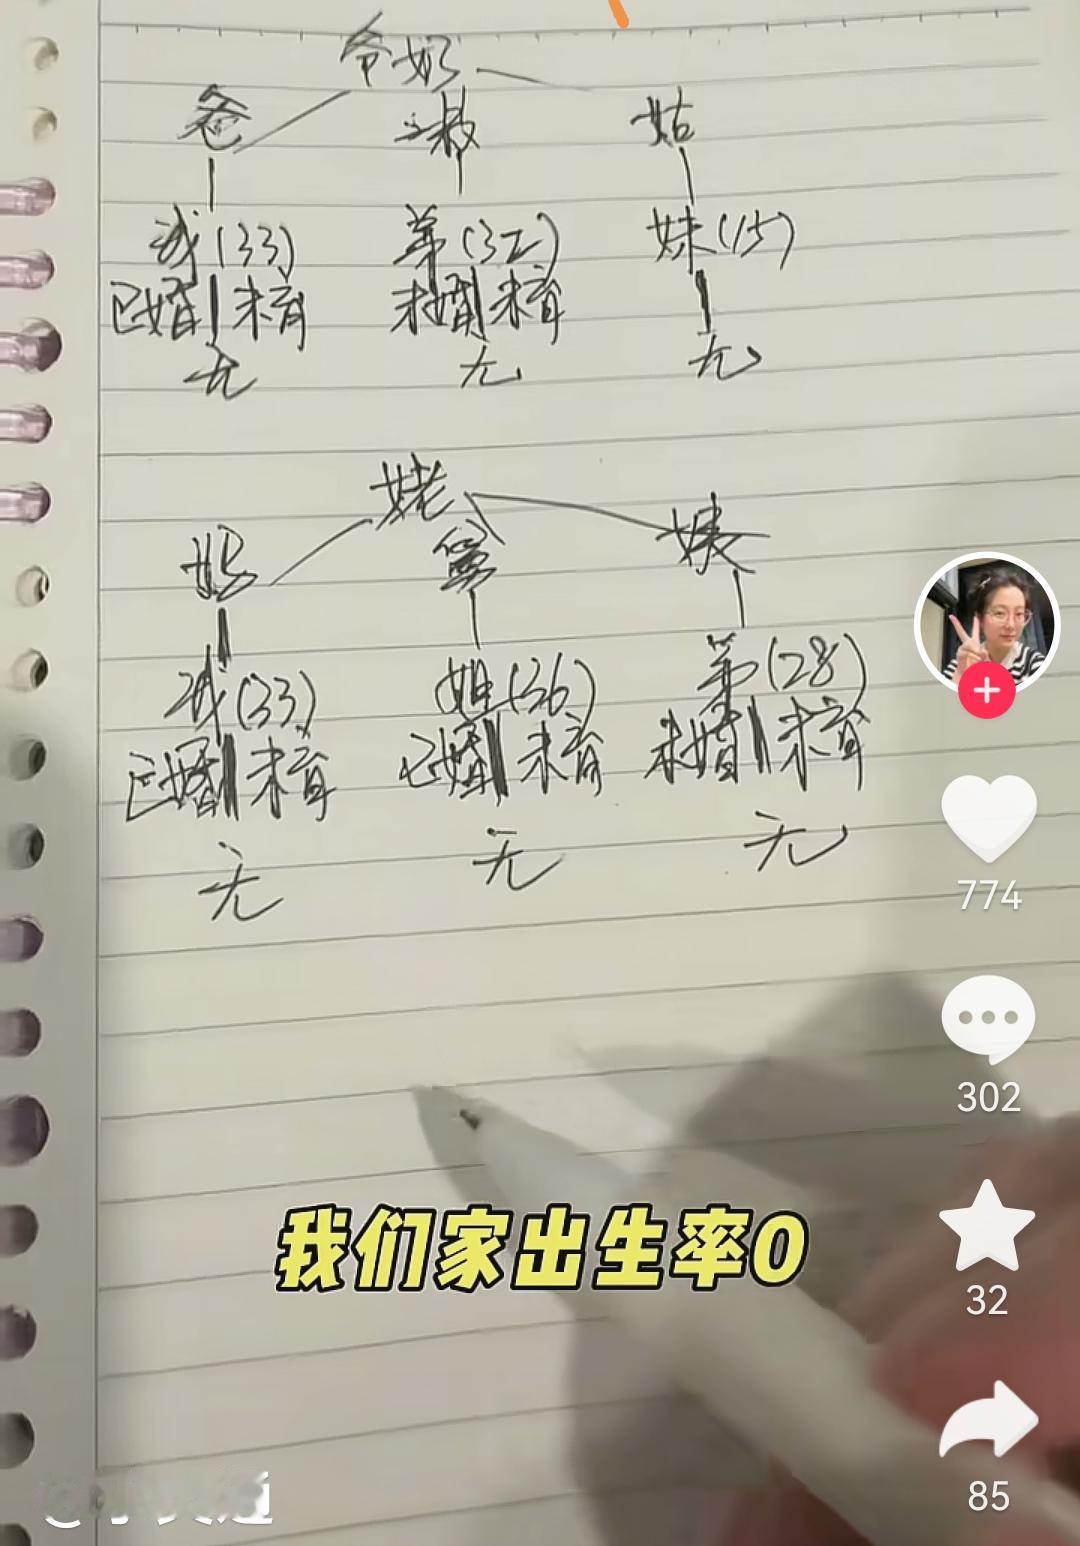 爷奶
爸 叔 姑
诚(33) 弟(32) 妹(15)
已婚 未育 未婚 未育
无 无 无
姥
妈 舅 姨
诚(33) 姐(36) 弟(28)
已婚 未育 已婚 未育 未婚 未育
无 无 无
774
302
我们家出生率0
32
85